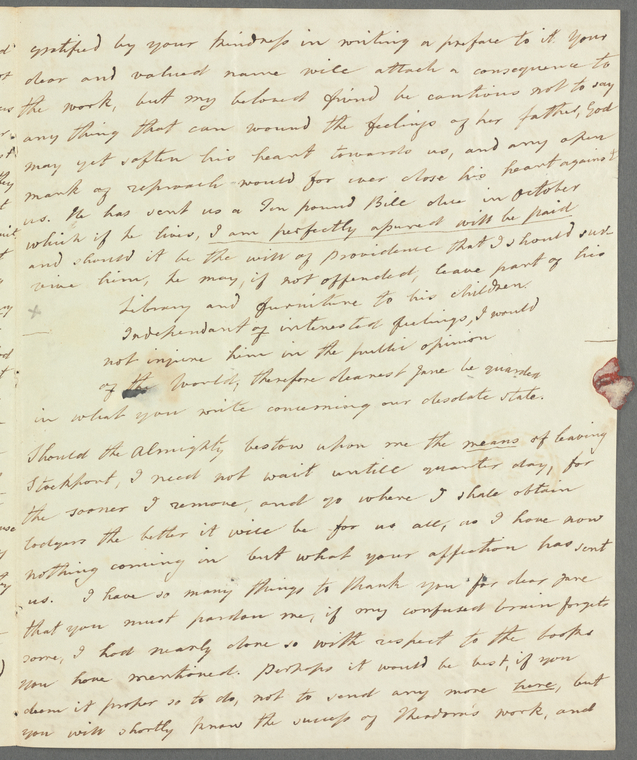 gratified by your kindness in writing a preface to it. Your
dear and valued name will attach a consequence to
the work, but my beloved friend be cautious not to say
any thing that can wound the feelings of her father, God
may yet soften his heart towards us, and any open
mark of reproach would for ever close his heart against
us. He has sent us a Ten pound Bill due in October
which if he lives, I am perfectly assured will be paid
and should it be the will of Providence that I should sur-
vive him, he may, if not offended, leave part of his
Library and furniture to his children.
Independant of interested feelings, I would
not injure him in the public opinion
of the World, therefore dearest Jane be guarded
in what you write concerning our desolate state.
Should the Almighty bestow upon me the means of leaving
Stockport, I need not wait untill quarter day, for
the sooner I remove, and go where I shall obtain
lodgers the better it will be for us all, as I have now
nothing coming in but what your affection has sent
us. I have so many things to thank you for dear Jane
that you must pardon me, if my confused brain forgets
some, I had nearly done so with respect to the books
you have mentioned. Perhaps it would be best, if you
deem it proper so to do, not to send any more here, but
you will shortly know the success of Theodora's work, and